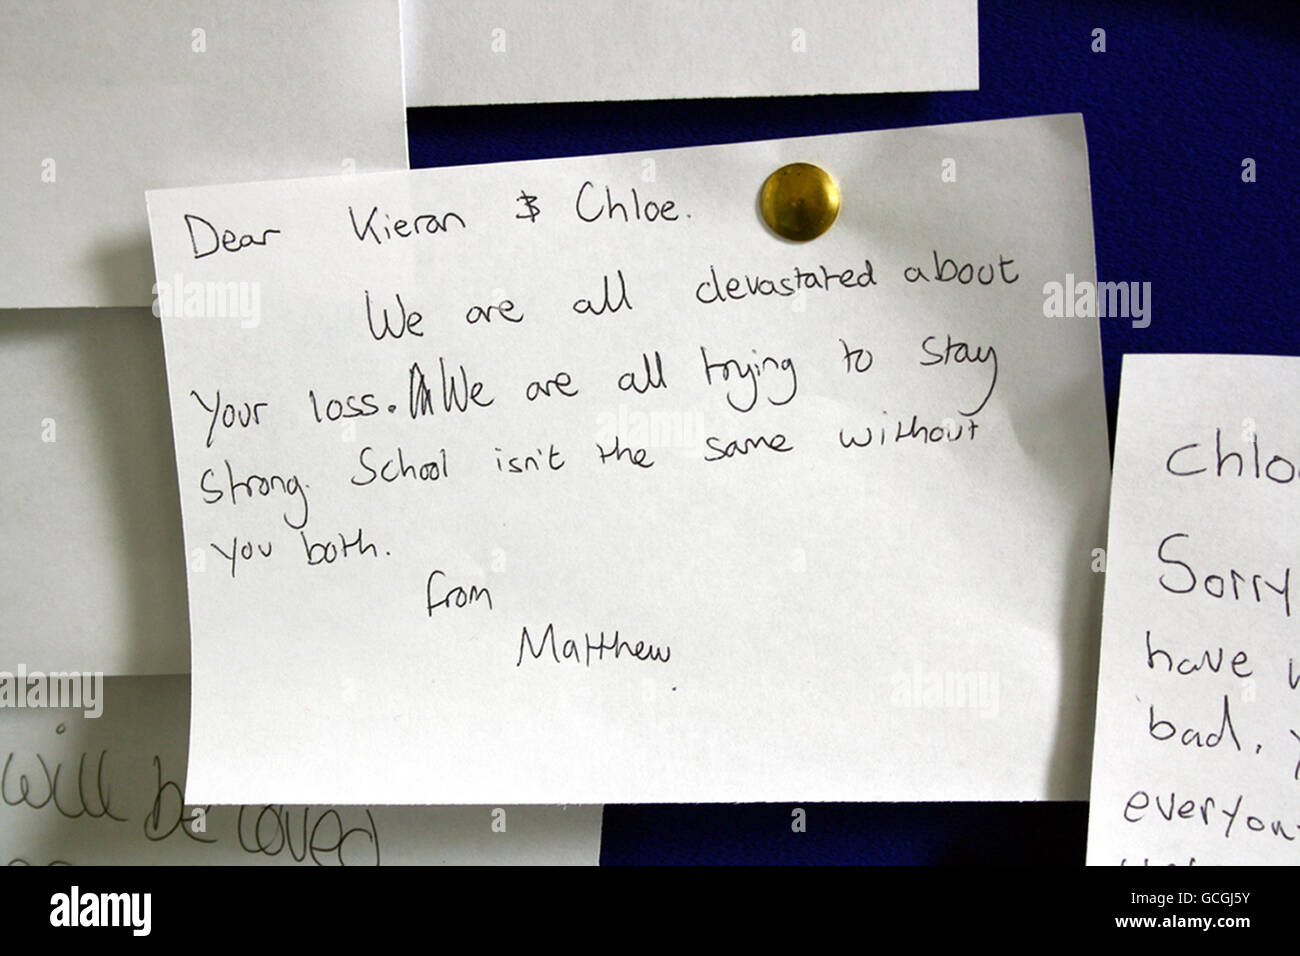 Dear Kieran & Chloe.
We are all devastated about
Your loss. We are all trying to stay
strong. School isn't the same without
you both.
from
Matthew
will be loved
Chlo
Sorry
have
bad.
everyon
alamy
alamy
alamy
alamy
alamy
alamy
Image ID: GCGJ5Y
www.alamy.com